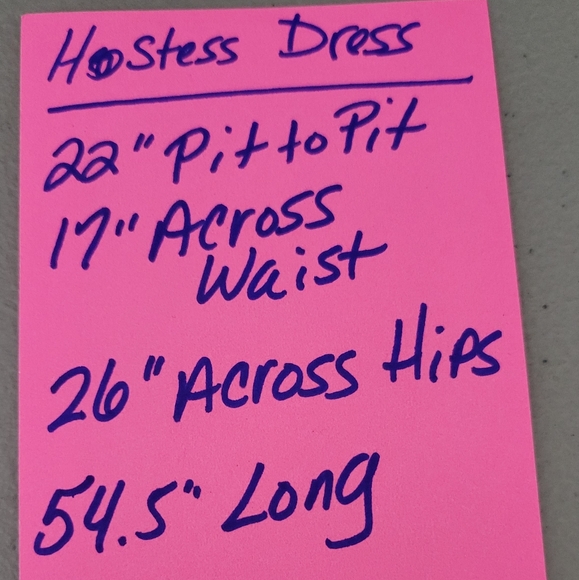 Hostess Dress
22" Pit to Pit
17" Across
Waist
26" Across Hips
54.5" Long